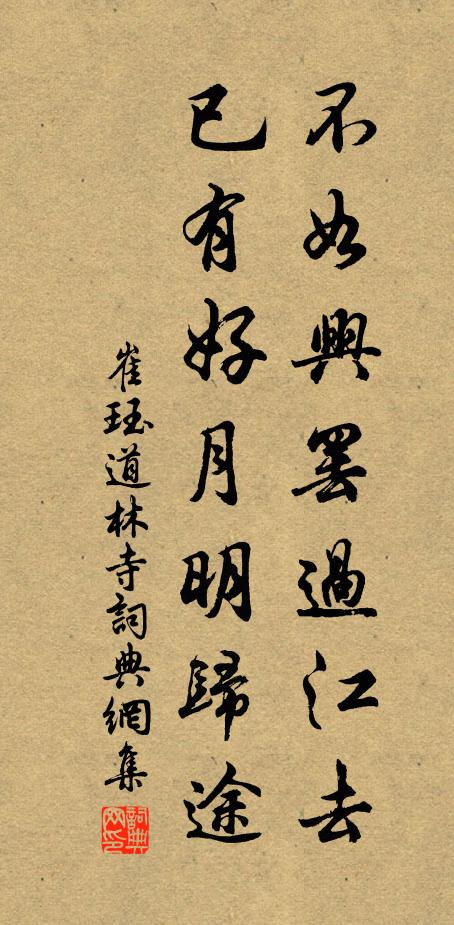 不如興罷過江去
已有好月明歸途
崔珏道林寺詞典網集
詞典网印